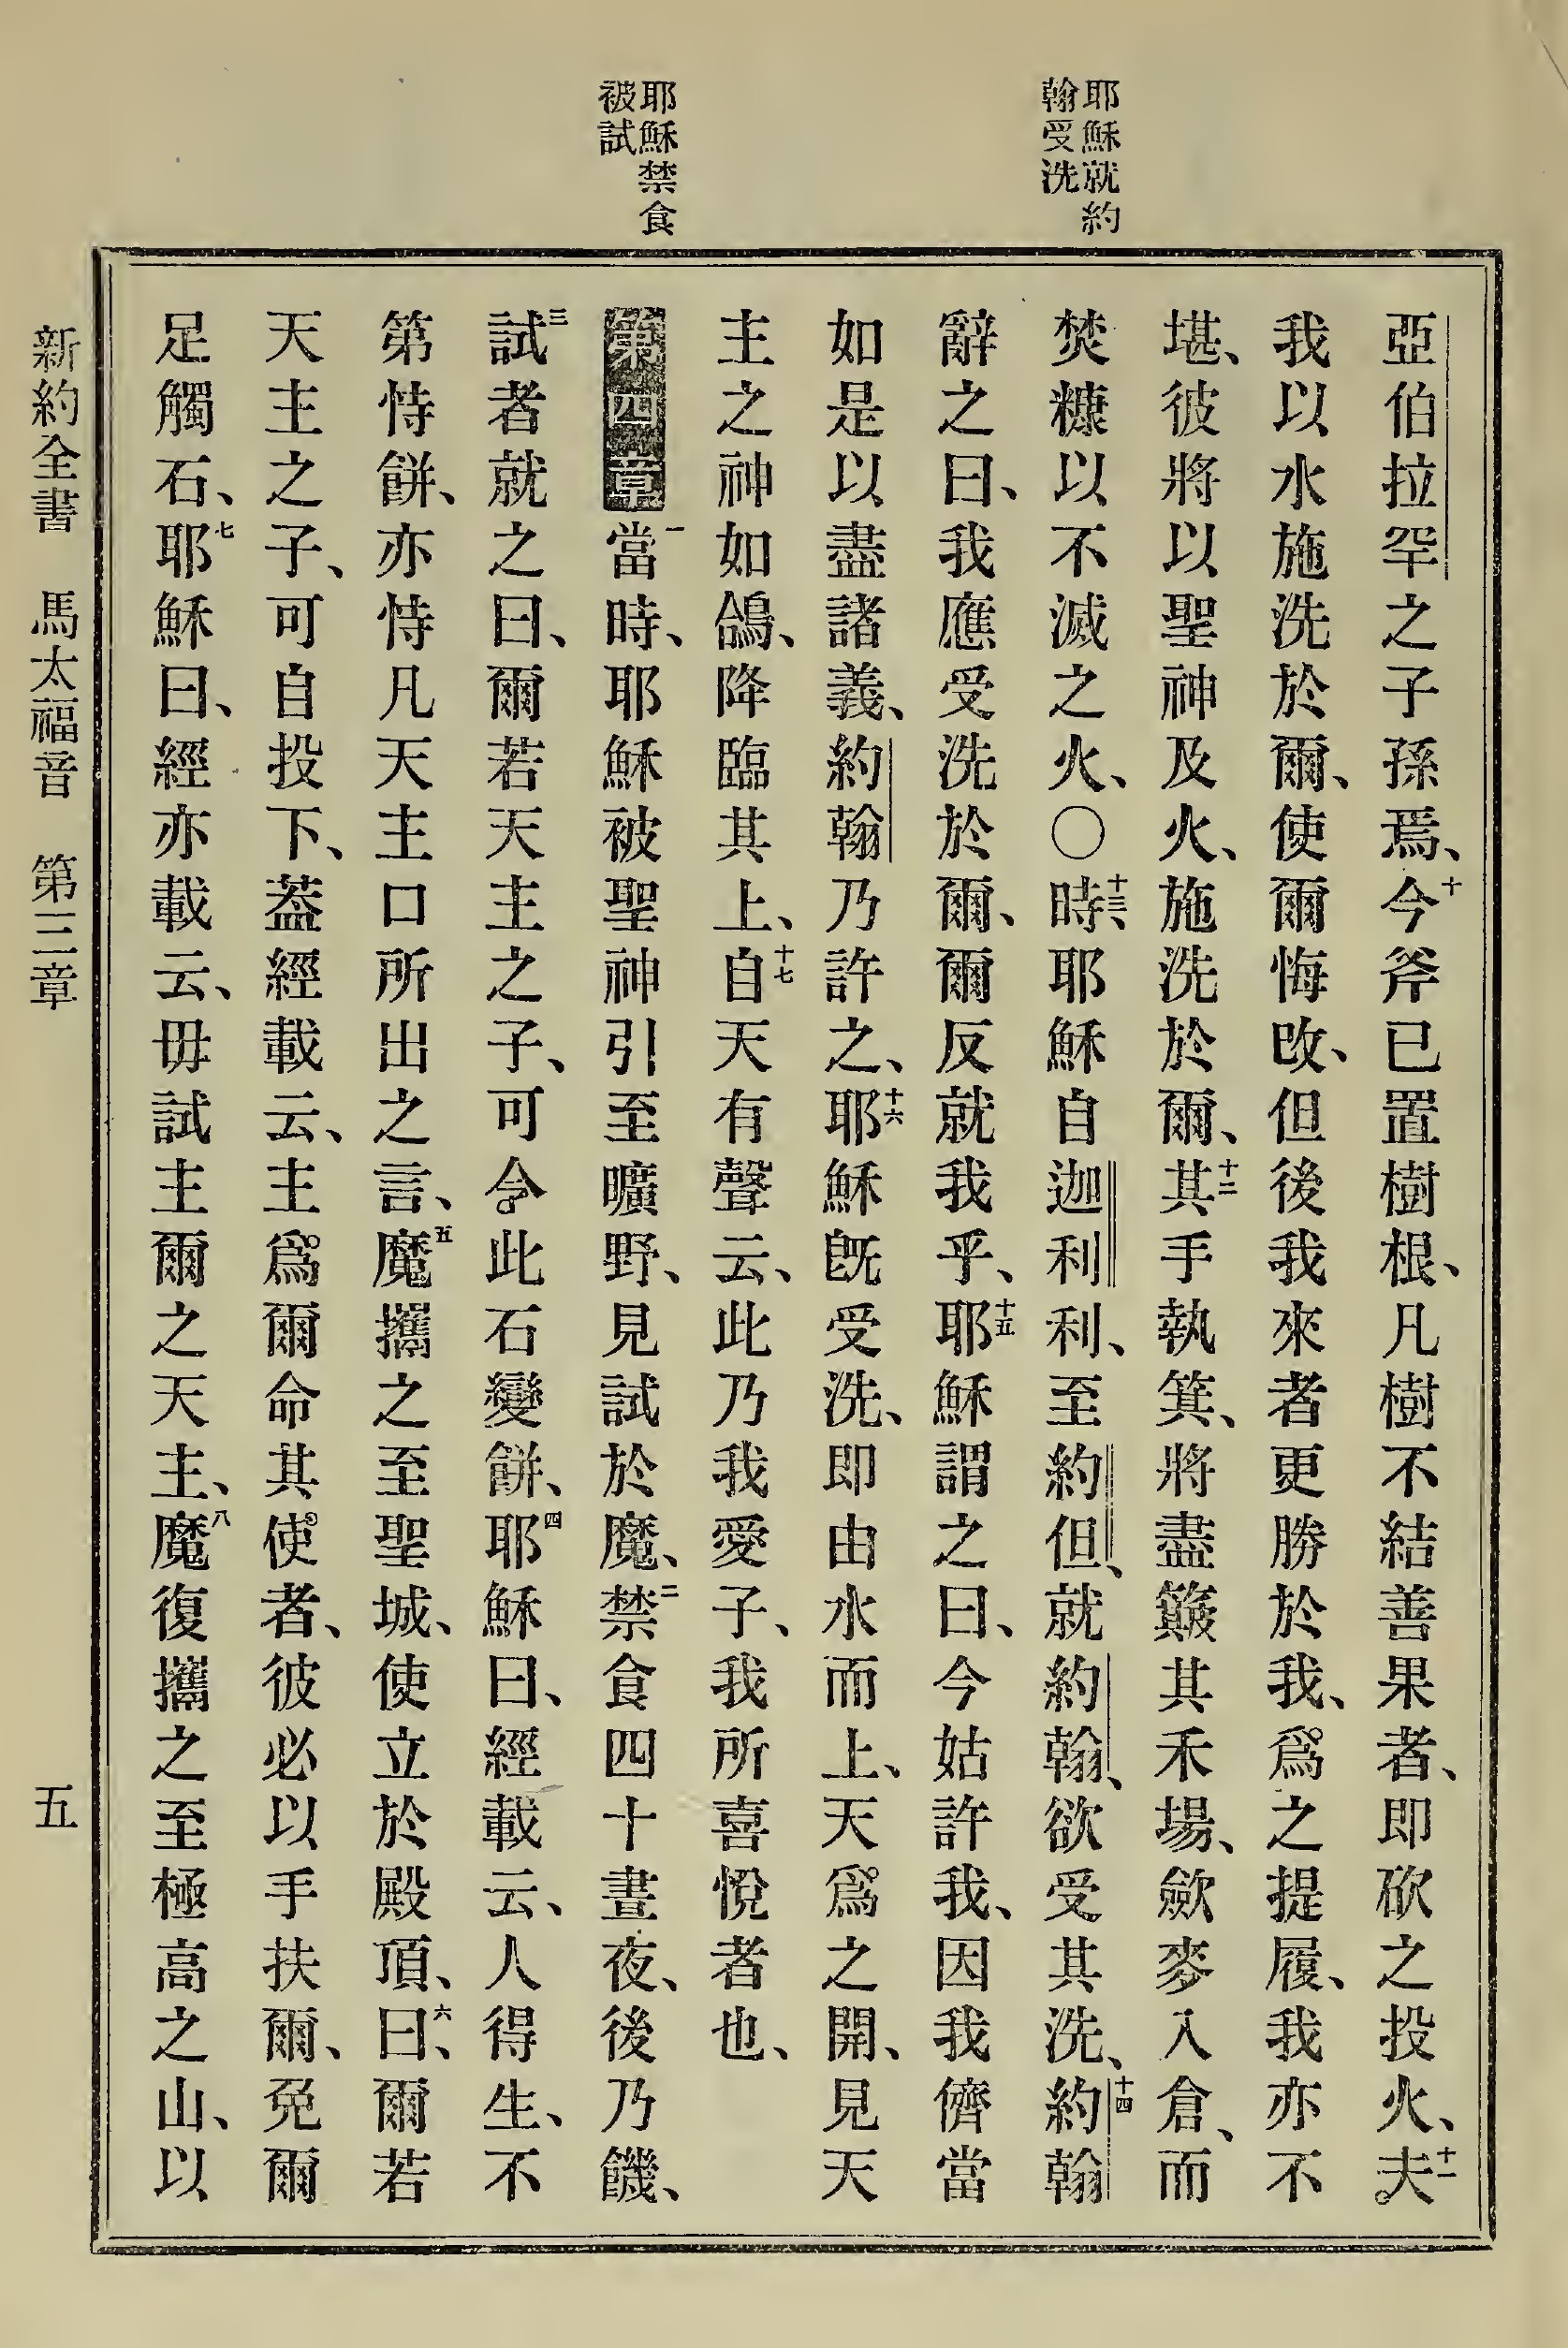 耶穌就約
翰受洗
耶穌禁食
被試
亞伯拉罕之子孫焉、十今斧已置樹根、凡樹不結善果者、即砍之投火、十一夫
我以水施洗於爾、使爾悔改、但後我來者更勝於我、爲之提履、我亦不
堪、彼將以聖神及火、施洗於爾、十二其手執箕、將盡簸其禾場、歛麥入倉、而
焚糠以不滅之火、○十三時、耶穌自迦利利、至約但、就約翰、欲受其洗、十四約翰
辭之曰、我應受洗於爾、爾反就我乎、十五耶穌謂之曰、今姑許我、因我儕當
如是以盡諸義、約翰乃許之、十六耶穌旣受洗、即由水而上、天爲之開、見天
主之神如鴿、降臨其上、十七自天有聲云、此乃我愛子、我所喜悅者也、
第四章一當時、耶穌被聖神引至曠野、見試於魔、二禁食四十晝夜、後乃饑、
三試者就之曰、爾若天主之子、可令此石變餅、四耶穌曰、經載云、人得生、不
第恃餅、亦恃凡天主口所出之言、五魔攜之至聖城、使立於殿頂、六曰、爾若
天主之子、可自投下、蓋經載云、主爲爾命其使者、彼必以手扶爾、免爾
足觸石、七耶穌曰、經亦載云、毋試主爾之天主、八魔復攜之至極高之山、以
新約全書　馬太福音　第三章　五